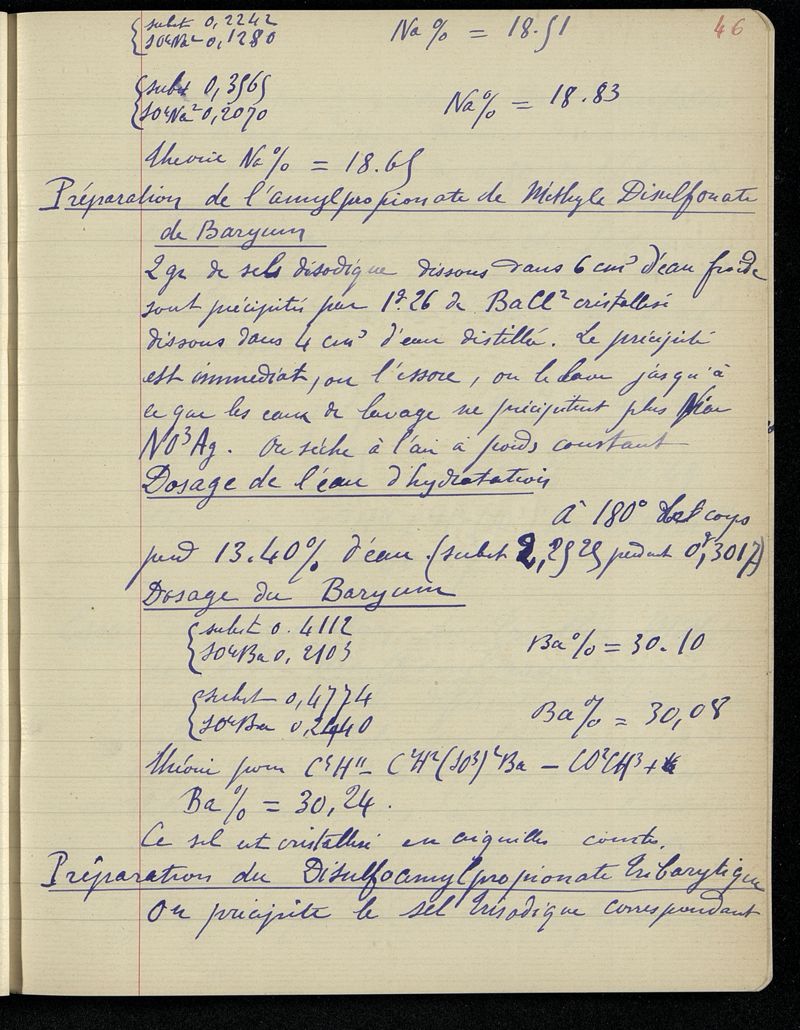 { subst 0,2242
SO⁴Na² 0,1280 Na% = 18.51 46
{ subst 0,3565
SO⁴Na² 0,2070 Na% = 18.83
théorie Na% = 18.65
Préparation de l'amylpropionate de Méthyle Disulfonate
de Baryum
2 gr de sels disodique dissous dans 6 cm³ d'eau froide
sont précipités par 1g.26 de BaCl² cristallisé
dissous dans 4 cm³ d'eau distillée. Le précipité
est immédiat, on l'essore, on le lave jusqu'à
ce que les eaux de lavage ne précipitent plus par
NO³Ag. On sèche à l'air à poids constant
Dosage de l'eau d'hydratation
à 180° corps
perd 13.40% d'eau. (subst 2,2525 perdent 0g,3017)
Dosage du Baryum
{ subst 0.4112
SO⁴Ba 0,2103 Ba% = 30.10
{ subst 0,4774
SO⁴Ba 0,2440 Ba% = 30,08
théorie pour C⁵H¹¹ – C²H²(SO³)²Ba – CO²CH³ +
Ba% = 30,24.
Ce sel est cristallisé en aiguilles courtes.
Préparation du Disulfoamylpropionate tribarytique
On précipite le sel trisodique correspondant